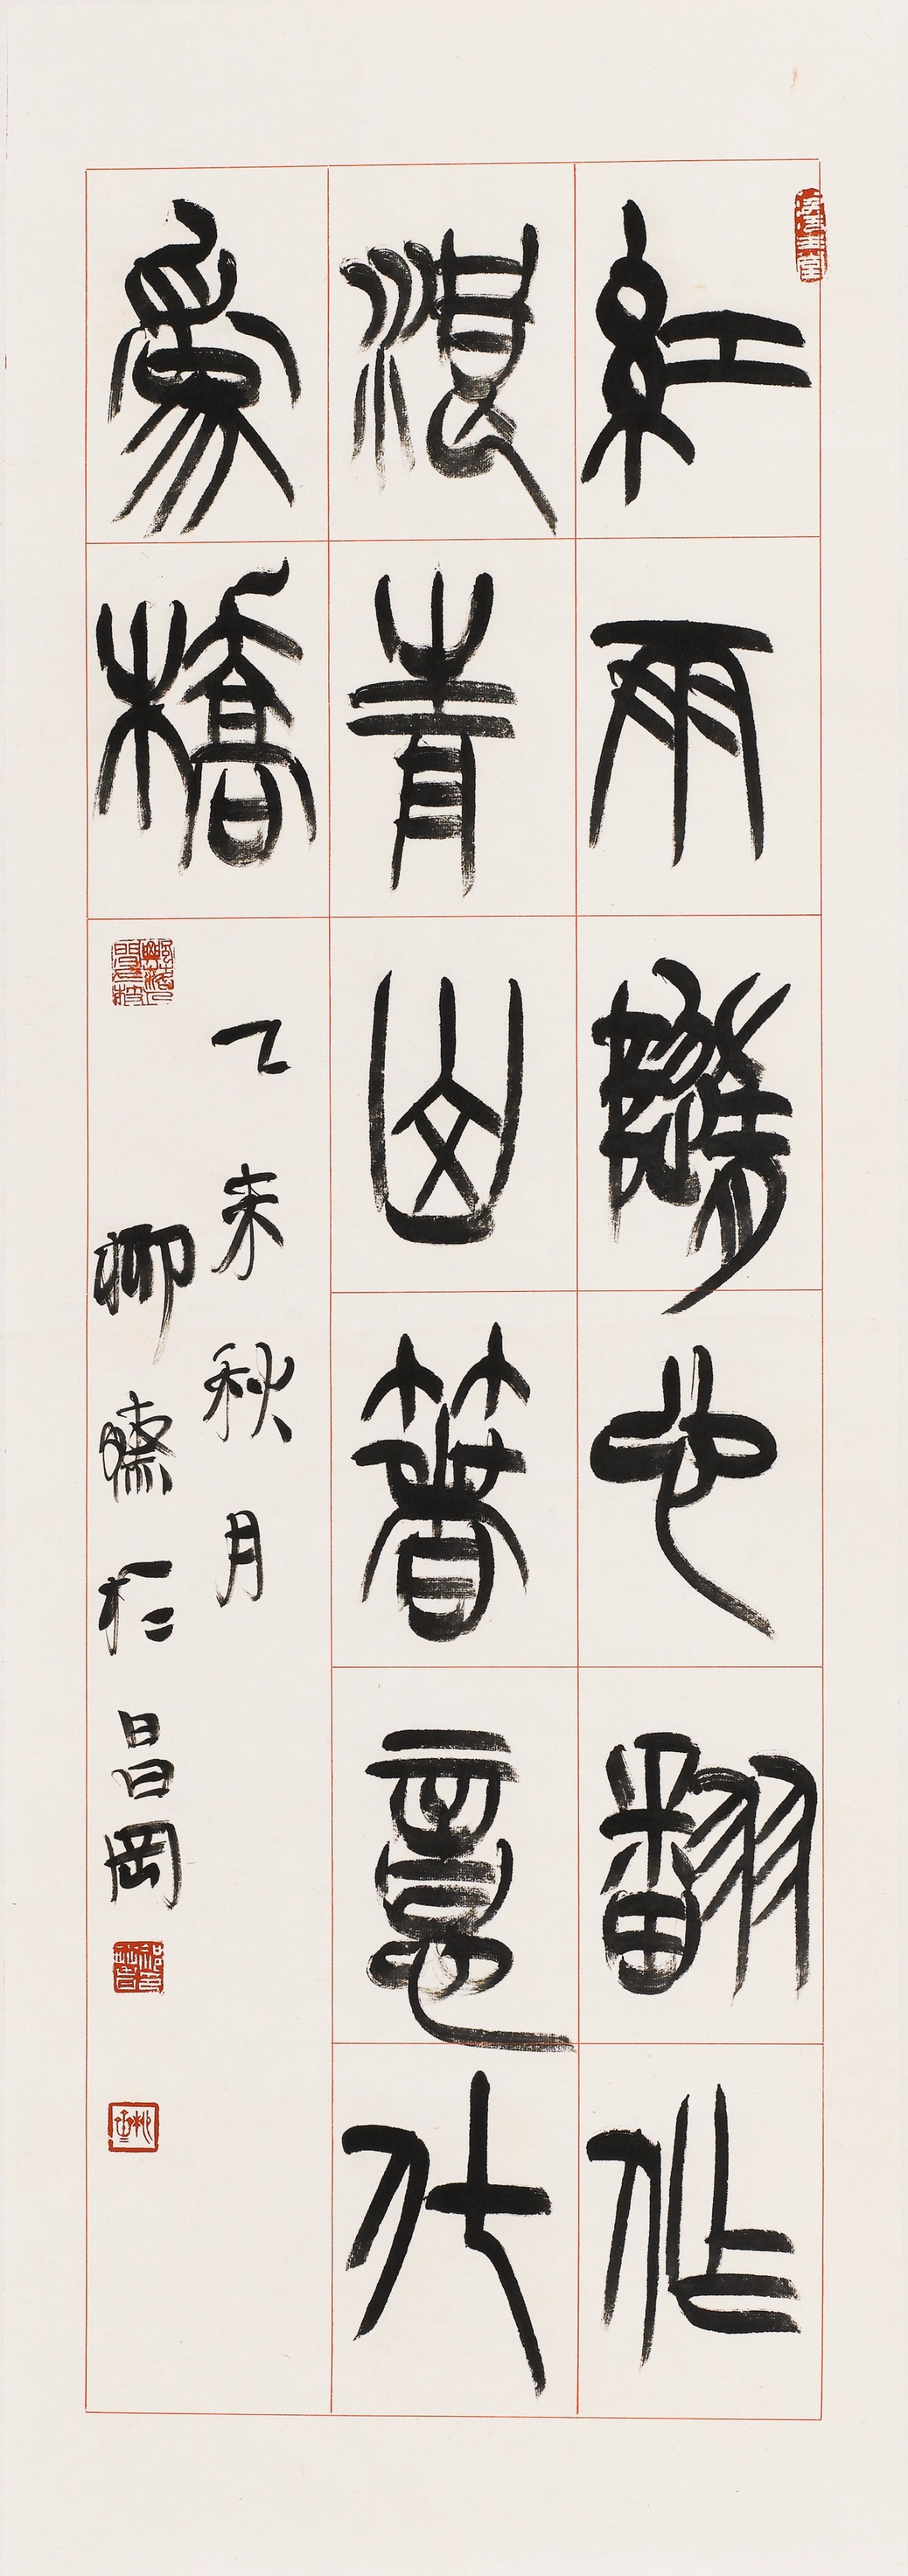 紅雨隨心翻作
浪青山箸意化
為橋
乙未秋月
柳仁昌岡